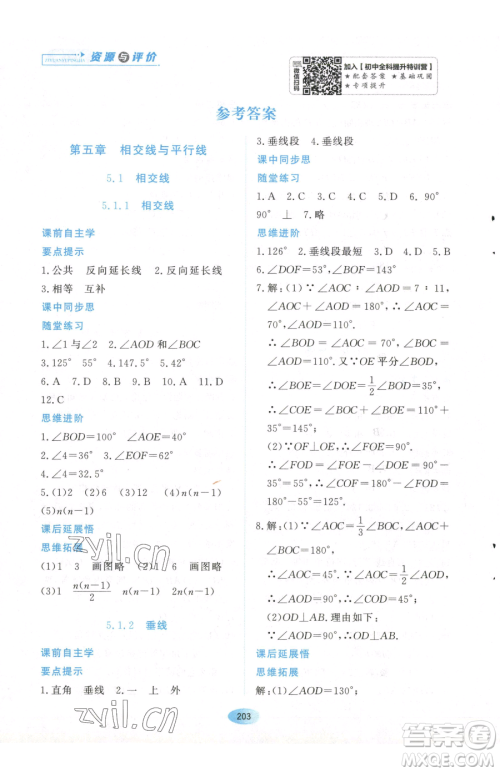 资源与评价
微信扫码
加入【初中全科提升特训营】
★配套答案 ★基础巩固
★专项提升
参考答案
第五章 相交线与平行线
5.1 相交线
5.1.1 相交线
课前自主学
要点提示
1.公共 反向延长线 反向延长线
3.相等 互补
课中同步思
随堂练习
1.∠1与∠2 2.∠AOD和∠BOC
3.125° 55° 4.147.5° 5.42°
6.A 7.D 8.A 9.B 10.A 11.D
12.C
思维进阶
1.∠BOD=100° ∠AOE=40°
2.∠4=36° 3.∠EOF=62°
4.∠4=32.5°
5.(1)2 (2)6 (3)12 (4)n(n-1)
(5)n(n-1)
课后延展悟
思维拓展
(1)1 3 画图略 (2)1 6 画图略
(3)1 n(n-1)/2 (4)1 n(n-1)/2
5.1.2 垂线
课前自主学
要点提示
1.直角 垂线 2.一 上 外
3.垂线段 4.垂线段
课中同步思
随堂练习
1.A 2.C 3.D 4.C 5.D 6.90°
90° ⊥ 7.略
思维进阶
1.126° 2.垂线段最短 3.D 4.D 5.B
6.∠DOF=53°,∠BOF=143°
7.解:(1)∵∠AOC:∠AOD=7:11,
∠AOC+∠AOD=180°,∴∠AOC=
70°,∠AOD=110°.
∴∠BOD=∠AOC=70°,∠BOC=
∠AOD=110°.又∵OE平分∠BOD,
∴∠BOE=∠DOE=1/2∠BOD=35°,
∴∠COE=∠BOC+∠BOE=110°+
35°=145°;
(2)∵OF⊥OE,∴∠FOE=90°,
∴∠FOD=∠FOE-∠DOE=
90°-35°=55°,∴∠COF=180°-
∠FOD=180°-55°=125°.
8.解:(1)∵∠AOC=1/3∠BOC,
∴∠BOC=3∠AOC.∵∠AOC+
∠BOC=180°,∴∠AOC+3∠AOC=
180°,∴∠AOC=45°.∵∠AOC=1/2
∠AOD,∴∠COD=∠AOC=45°;
(2)OD⊥AB.理由如下:
∵∠AOC=45°,∠COD=45°,
∴∠AOD=∠AOC+∠COD=90°,
∴OD⊥AB.
课后延展悟
思维拓展
解:(1)∠AOD=130°;
203
zyjl.cn
zyjl.cn
答案圈
MXQE.COM